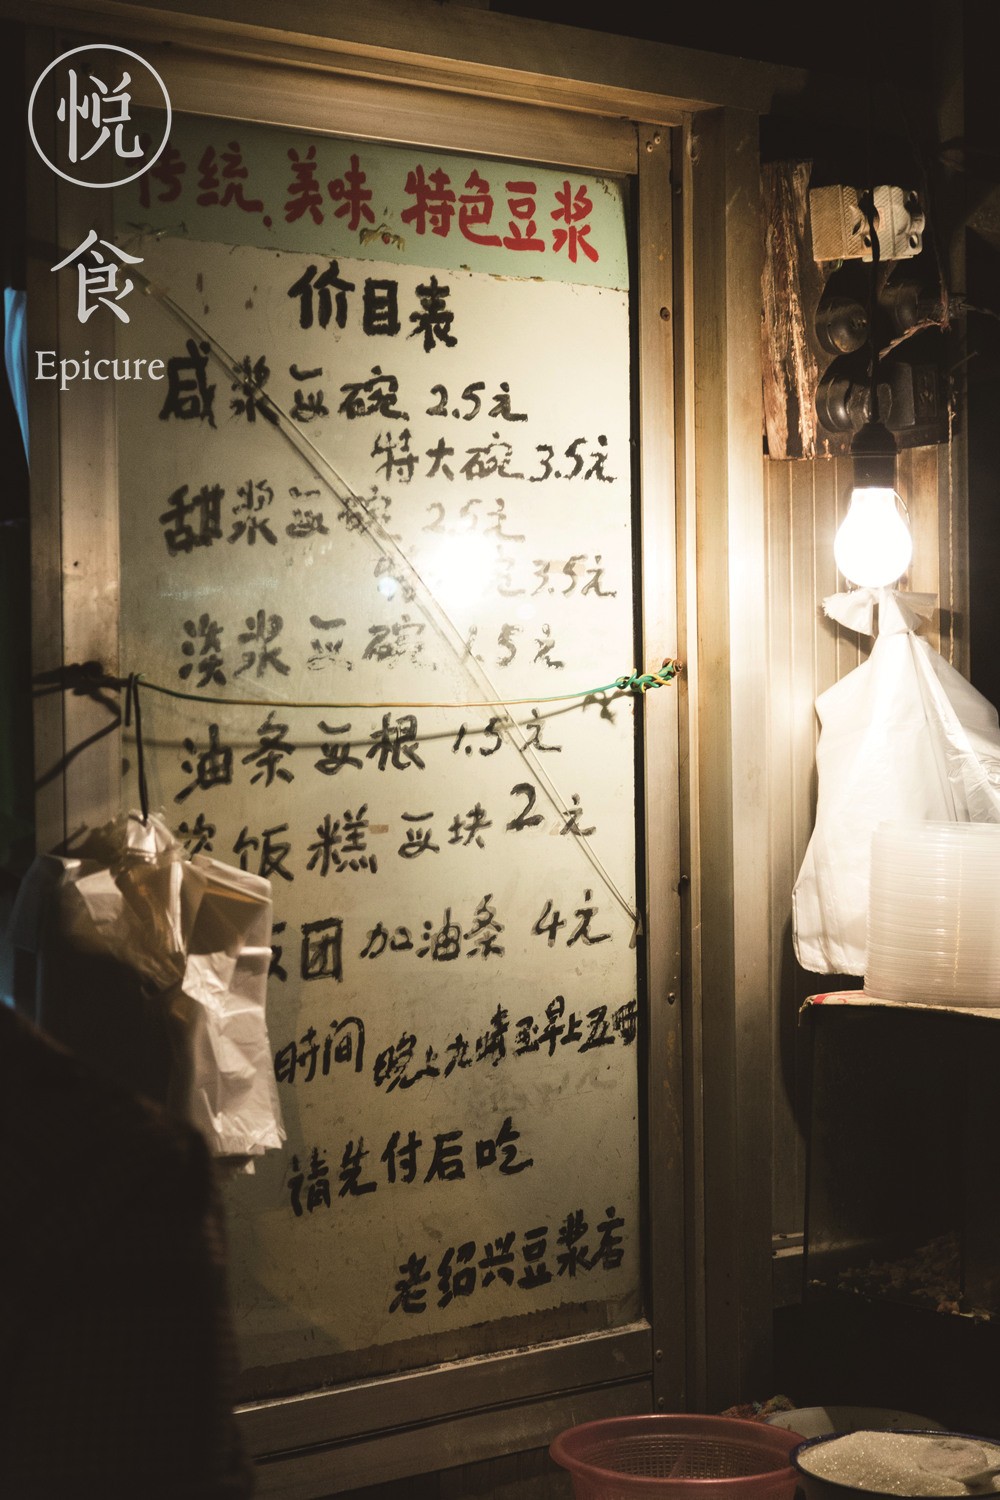 悦
食
Epicure
传统.美味 特色豆浆
价目表
咸浆每碗 2.5元
特大碗 3.5元
甜浆每碗 2.5元
特 3.5元
淡浆每碗 1.5元
油条每根 1.5元
饭糕每块 2元
团加油条 4元
时间 晚上九 至早上五
请先付后吃
老绍兴豆浆店